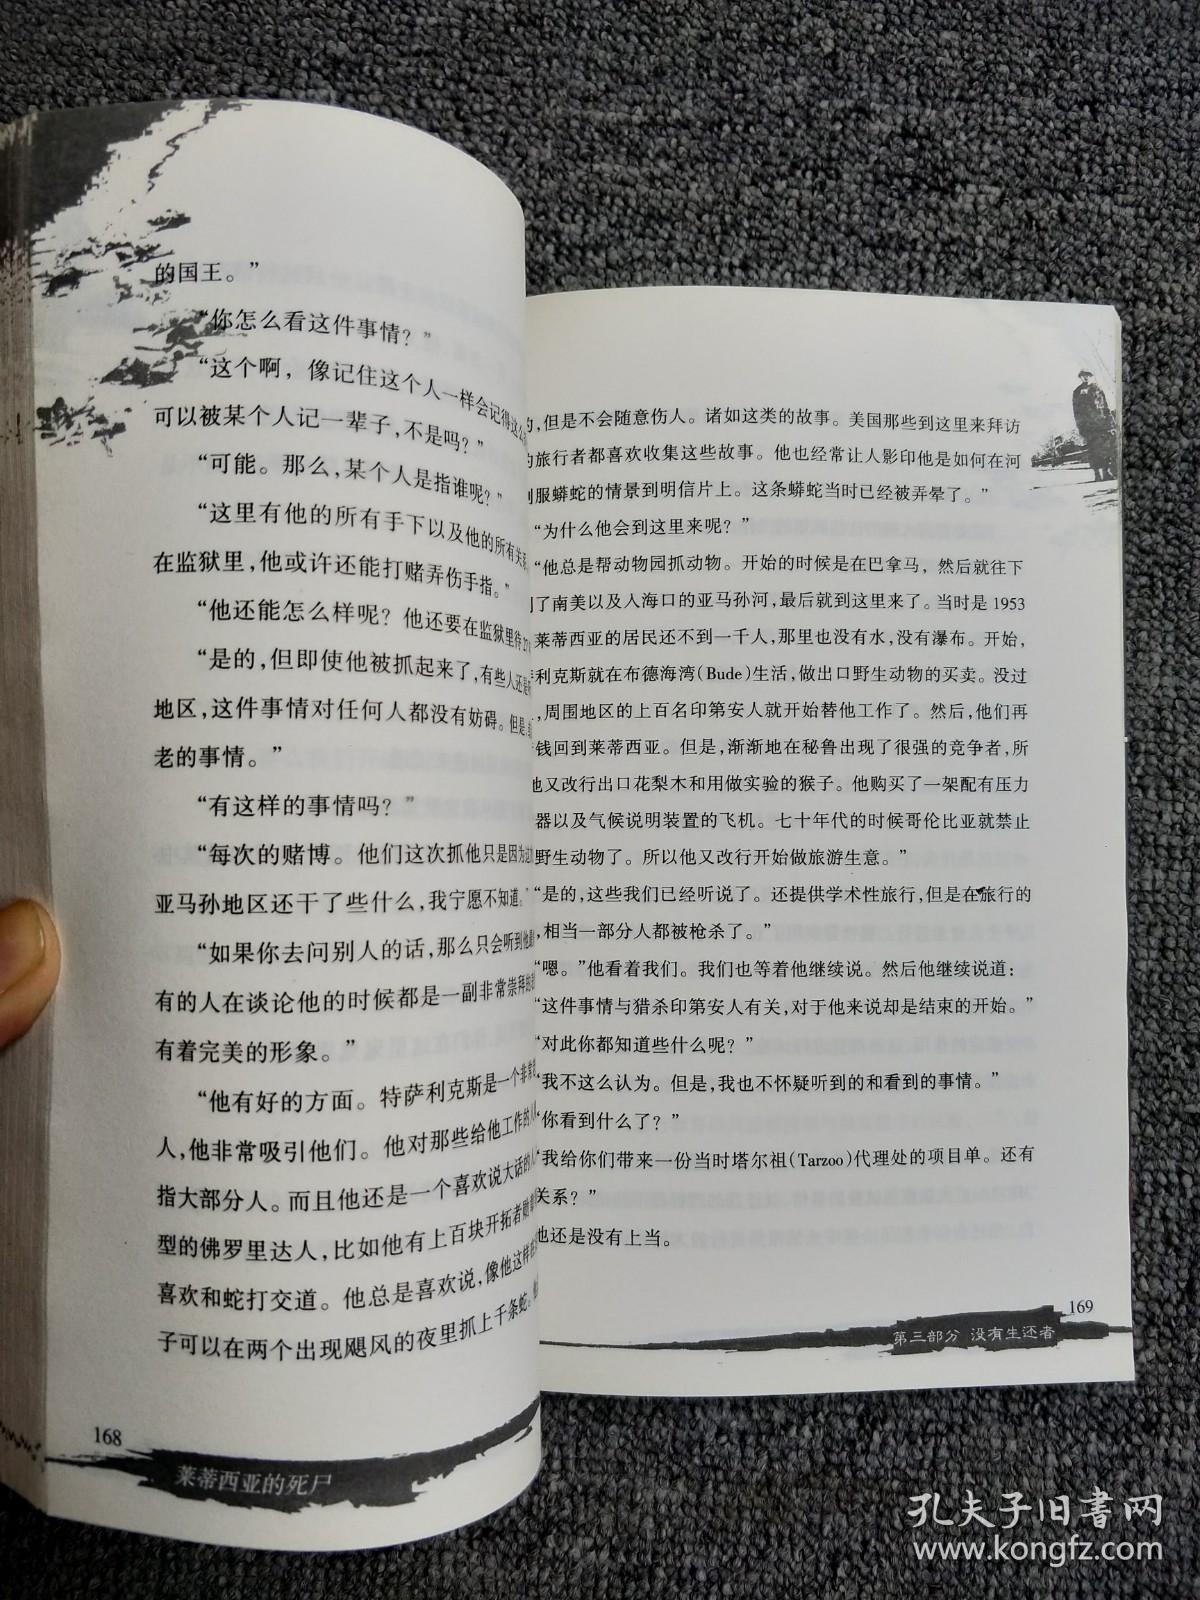 的国王。”
“你怎么看这件事情？”
“这个啊，像记住这个人一样会记得这么
可以被某个人记一辈子，不是吗？”
“可能。那么，某个人是指谁呢？”
“这里有他的所有手下以及他的所有关系
在监狱里，他或许还能打赌弄伤手指。”
“他还能怎么样呢？他还要在监狱里待27
“是的，但即使他被抓起来了，有些人还是
地区，这件事情对任何人都没有妨碍。但是
老的事情。”
“有这样的事情吗？”
“每次的赌博。他们这次抓他只是因为
亚马孙地区还干了些什么，我宁愿不知道。”
“如果你去问别人的话，那么只会听到他
有的人在谈论他的时候都是一副非常崇拜的
有着完美的形象。”
“他有好的方面。特萨利克斯是一个非常
人，他非常吸引他们。他对那些给他工作的
指大部分人。而且他还是一个喜欢说大话的
型的佛罗里达人，比如他有上百块开拓者勋
喜欢和蛇打交道。他总是喜欢说，像他这样
子可以在两个出现飓风的夜里抓上千条蛇。
168
莱蒂西亚的死尸
的，但是不会随意伤人。诸如这类的故事。美国那些到这里来拜访
的旅行者都喜欢收集这些故事。他也经常让人影印他是如何在河
服蟒蛇的情景到明信片上。这条蟒蛇当时已经被弄晕了。”
“为什么他会到这里来呢？”
“他总是帮动物园抓动物。开始的时候是在巴拿马，然后就往下
了南美以及入海口的亚马孙河，最后就到这里来了。当时是 1953
莱蒂西亚的居民还不到一千人，那里也没有水，没有瀑布。开始，
利克斯就在布德海湾（Bude）生活，做出口野生动物的买卖。没过
，周围地区的上百名印第安人就开始替他工作了。然后，他们再
钱回到莱蒂西亚。但是，渐渐地在秘鲁出现了很强的竞争者，所
他又改行出口花梨木和用做实验的猴子。他购买了一架配有压力
器以及气候说明装置的飞机。七十年代的时候哥伦比亚就禁止
野生动物了。所以他又改行开始做旅游生意。”
“是的，这些我们已经听说了。还提供学术性旅行，但是在旅行的
，相当一部分人都被枪杀了。”
“嗯。”他看着我们。我们也等着他继续说。然后他继续说道：
“这件事情与猎杀印第安人有关，对于他来说却是结束的开始。”
“对此你都知道些什么呢？”
“我不这么认为。但是，我也不怀疑听到的和看到的事情。”
“你看到什么了？”
“我给你们带来一份当时塔尔祖（Tarzoo）代理处的项目单。还有
关系？”
他还是没有上当。
169
第三部分 没有生还者
孔夫子旧书网
www.kongfz.com